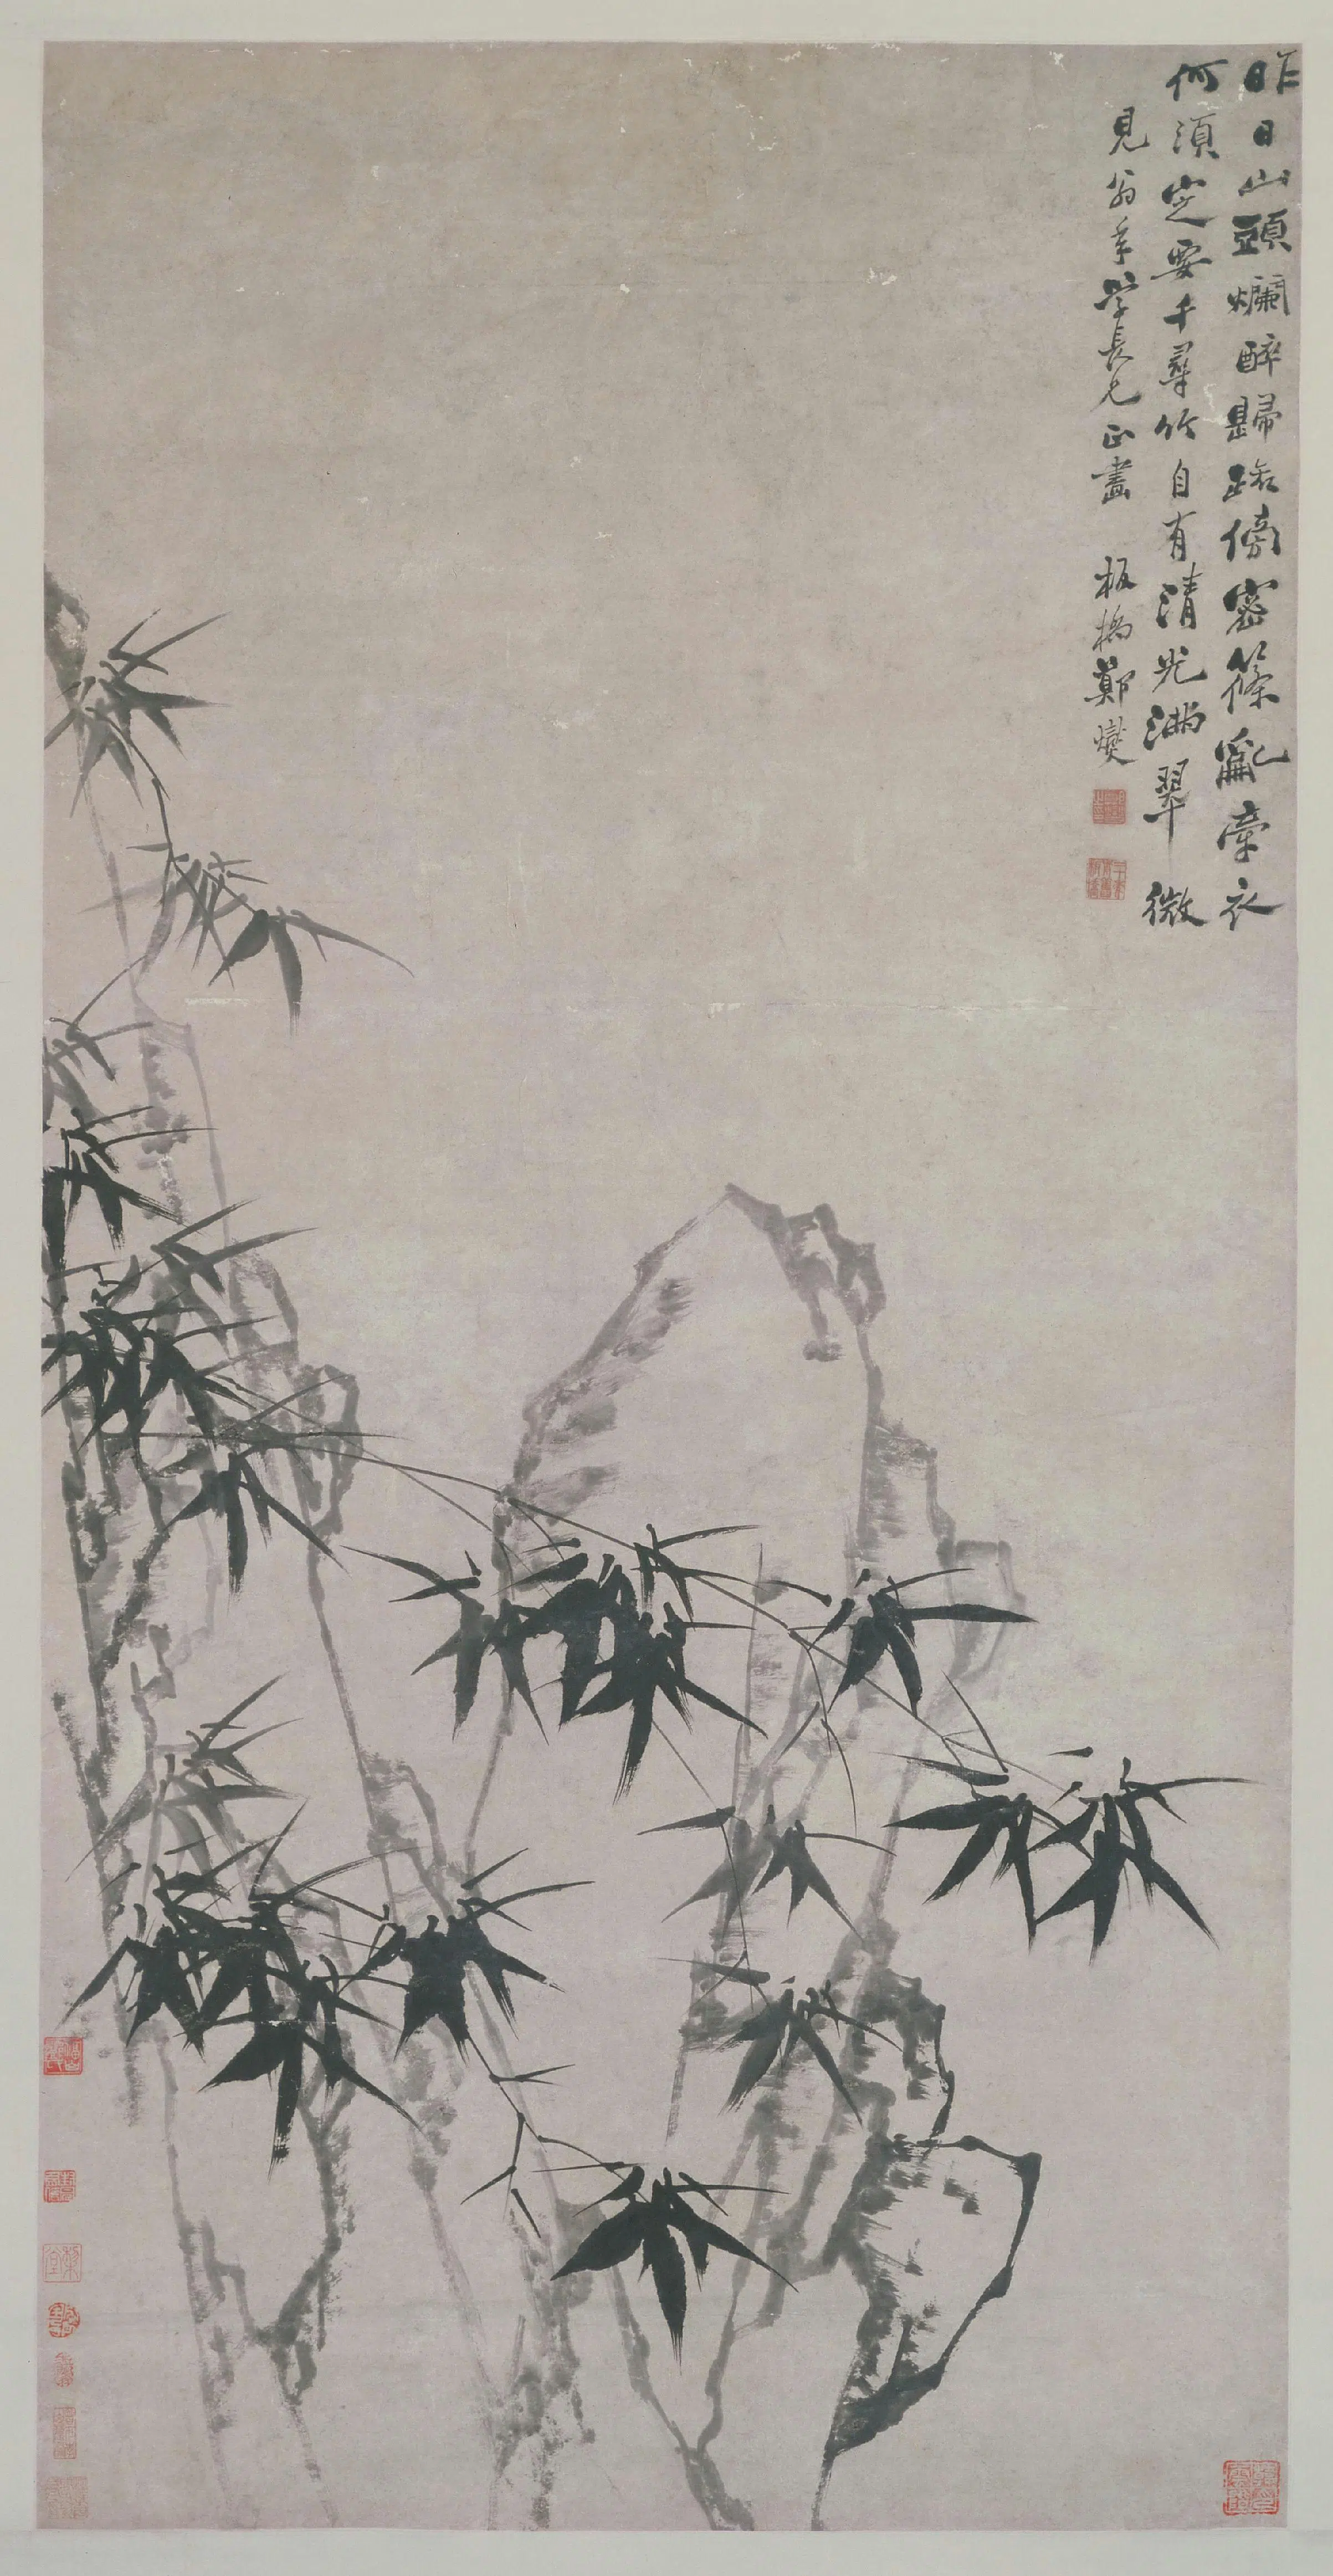 昨日山頭爛醉歸踈傍密篠亂牽衣
何須定要千尋竹自有清光滿翠微
見翁年学長兄正畫　板橋鄭燮